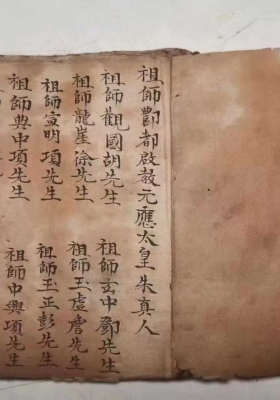 祖師酆都啟教元應太皇朱真人
祖師觀國胡先生
祖師玄中鄧先生
祖師龍崖徐先生
祖師玉虛詹先生
祖師宣明項先生
祖師玉正彭先生
祖師典中項先生
祖師中興項先生